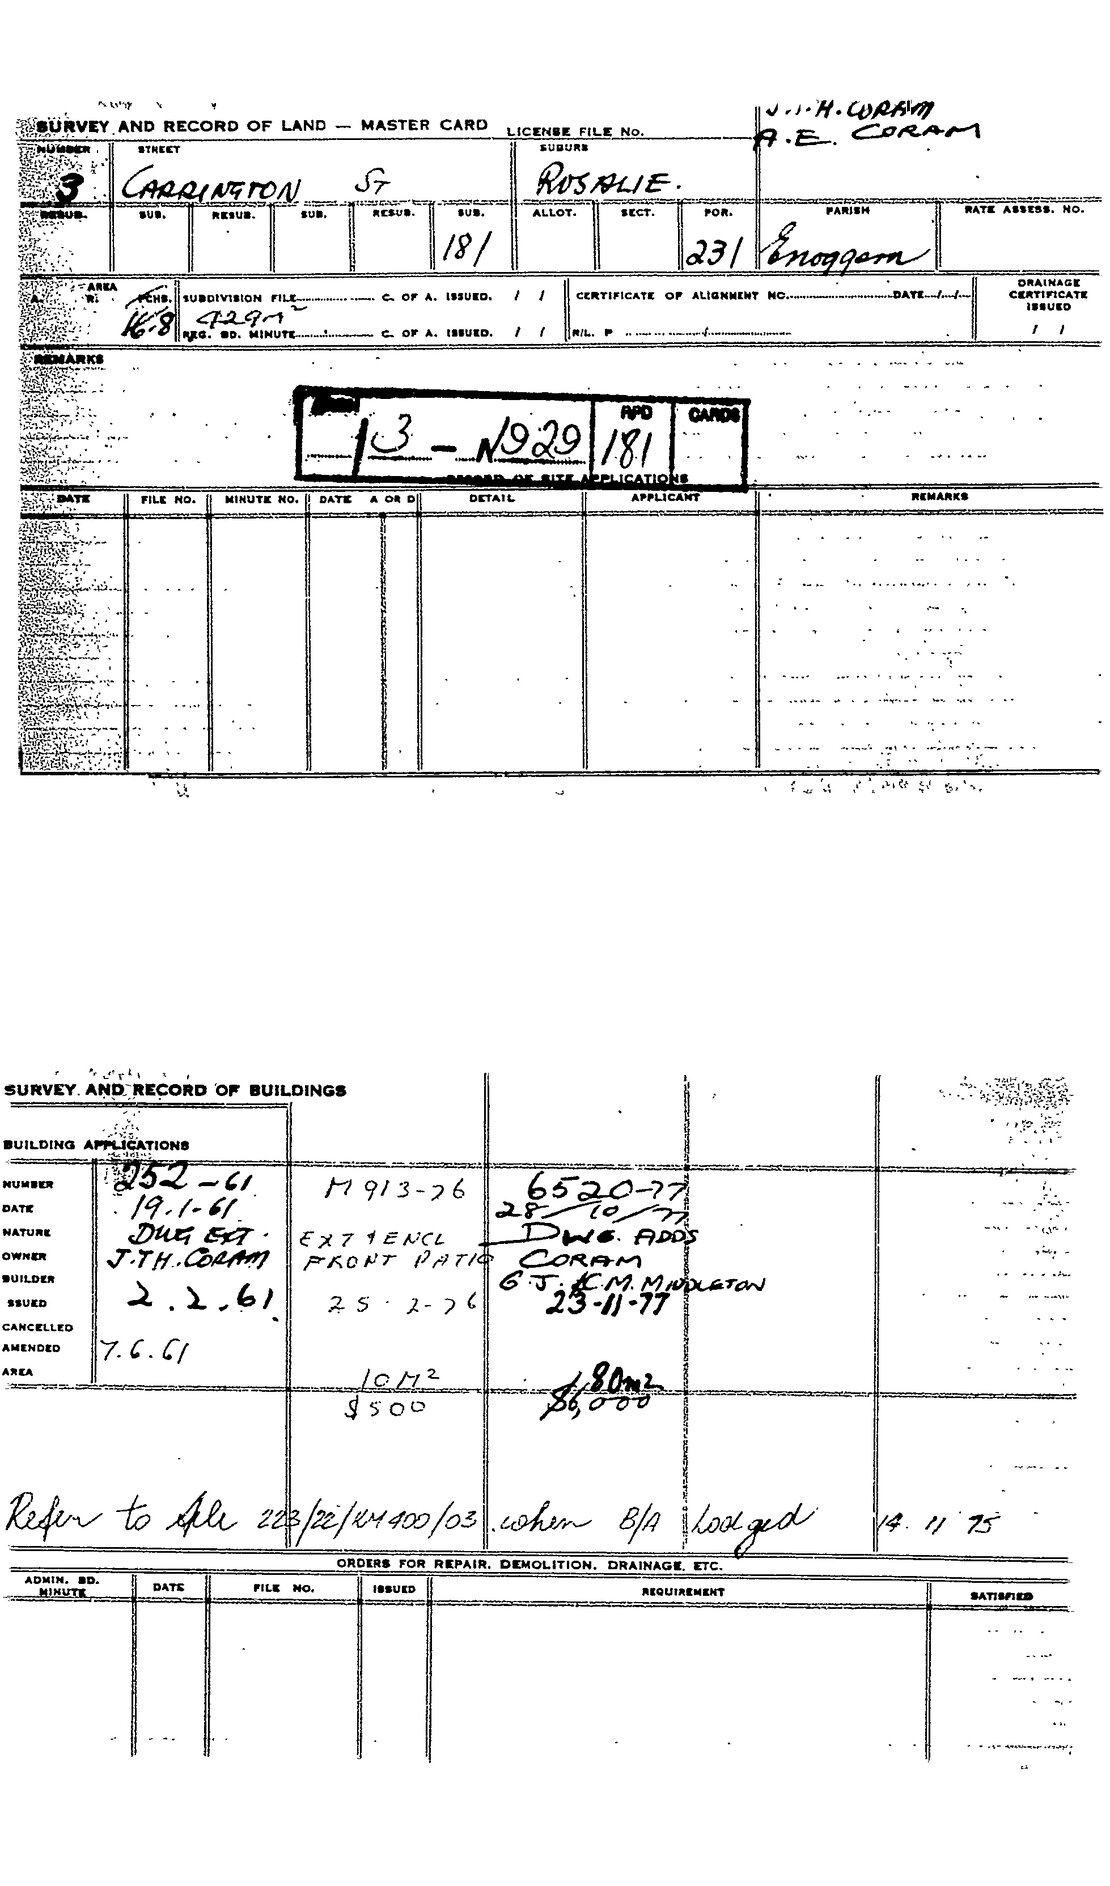 J.T.H. CORAM
SURVEY AND RECORD OF LAND — MASTER CARD LICENSE FILE No. A.E. CORAM
NUMBER STREET SUBURB
3 CARRINGTON ST ROSALIE.
RESUB. SUB. RESUB. SUB. RESUB. SUB. ALLOT. SECT. POR. PARISH RATE ASSESS. NO.
181 231 Enoggera
AREA DRAINAGE
A. R. PCHS. SUBDIVISION FILE C. OF A. ISSUED. / / CERTIFICATE OF ALIGNMENT NO. DATE / / CERTIFICATE
16.8 429m² ISSUED
REG. BD. MINUTE C. OF A. ISSUED. / / R/L. P / / /
REMARKS
RPD CARDS
3 – N929 181
RECORD OF SITE APPLICATIONS
DATE FILE NO. MINUTE NO. DATE A OR D DETAIL APPLICANT REMARKS
SURVEY AND RECORD OF BUILDINGS
BUILDING APPLICATIONS
NUMBER 252-61 M913-76 6520-77
DATE 19.1-61 28/10/77
NATURE DWG EXT. EXT & ENCL DWG. ADDS
OWNER J.TH. CORAM FRONT PATIO CORAM
BUILDER G.J. & C.M. MIDDLETON
ISSUED 2.2.61. 25.2-76 23-11-77
CANCELLED
AMENDED 7.6.61
AREA 10M² 80m2
$500 $6,000
Refer to file 223/22/KM400/03 when B/A lodged 14.11 75
ORDERS FOR REPAIR. DEMOLITION. DRAINAGE. ETC.
ADMIN. BD. MINUTE DATE FILE NO. ISSUED REQUIREMENT SATISFIED